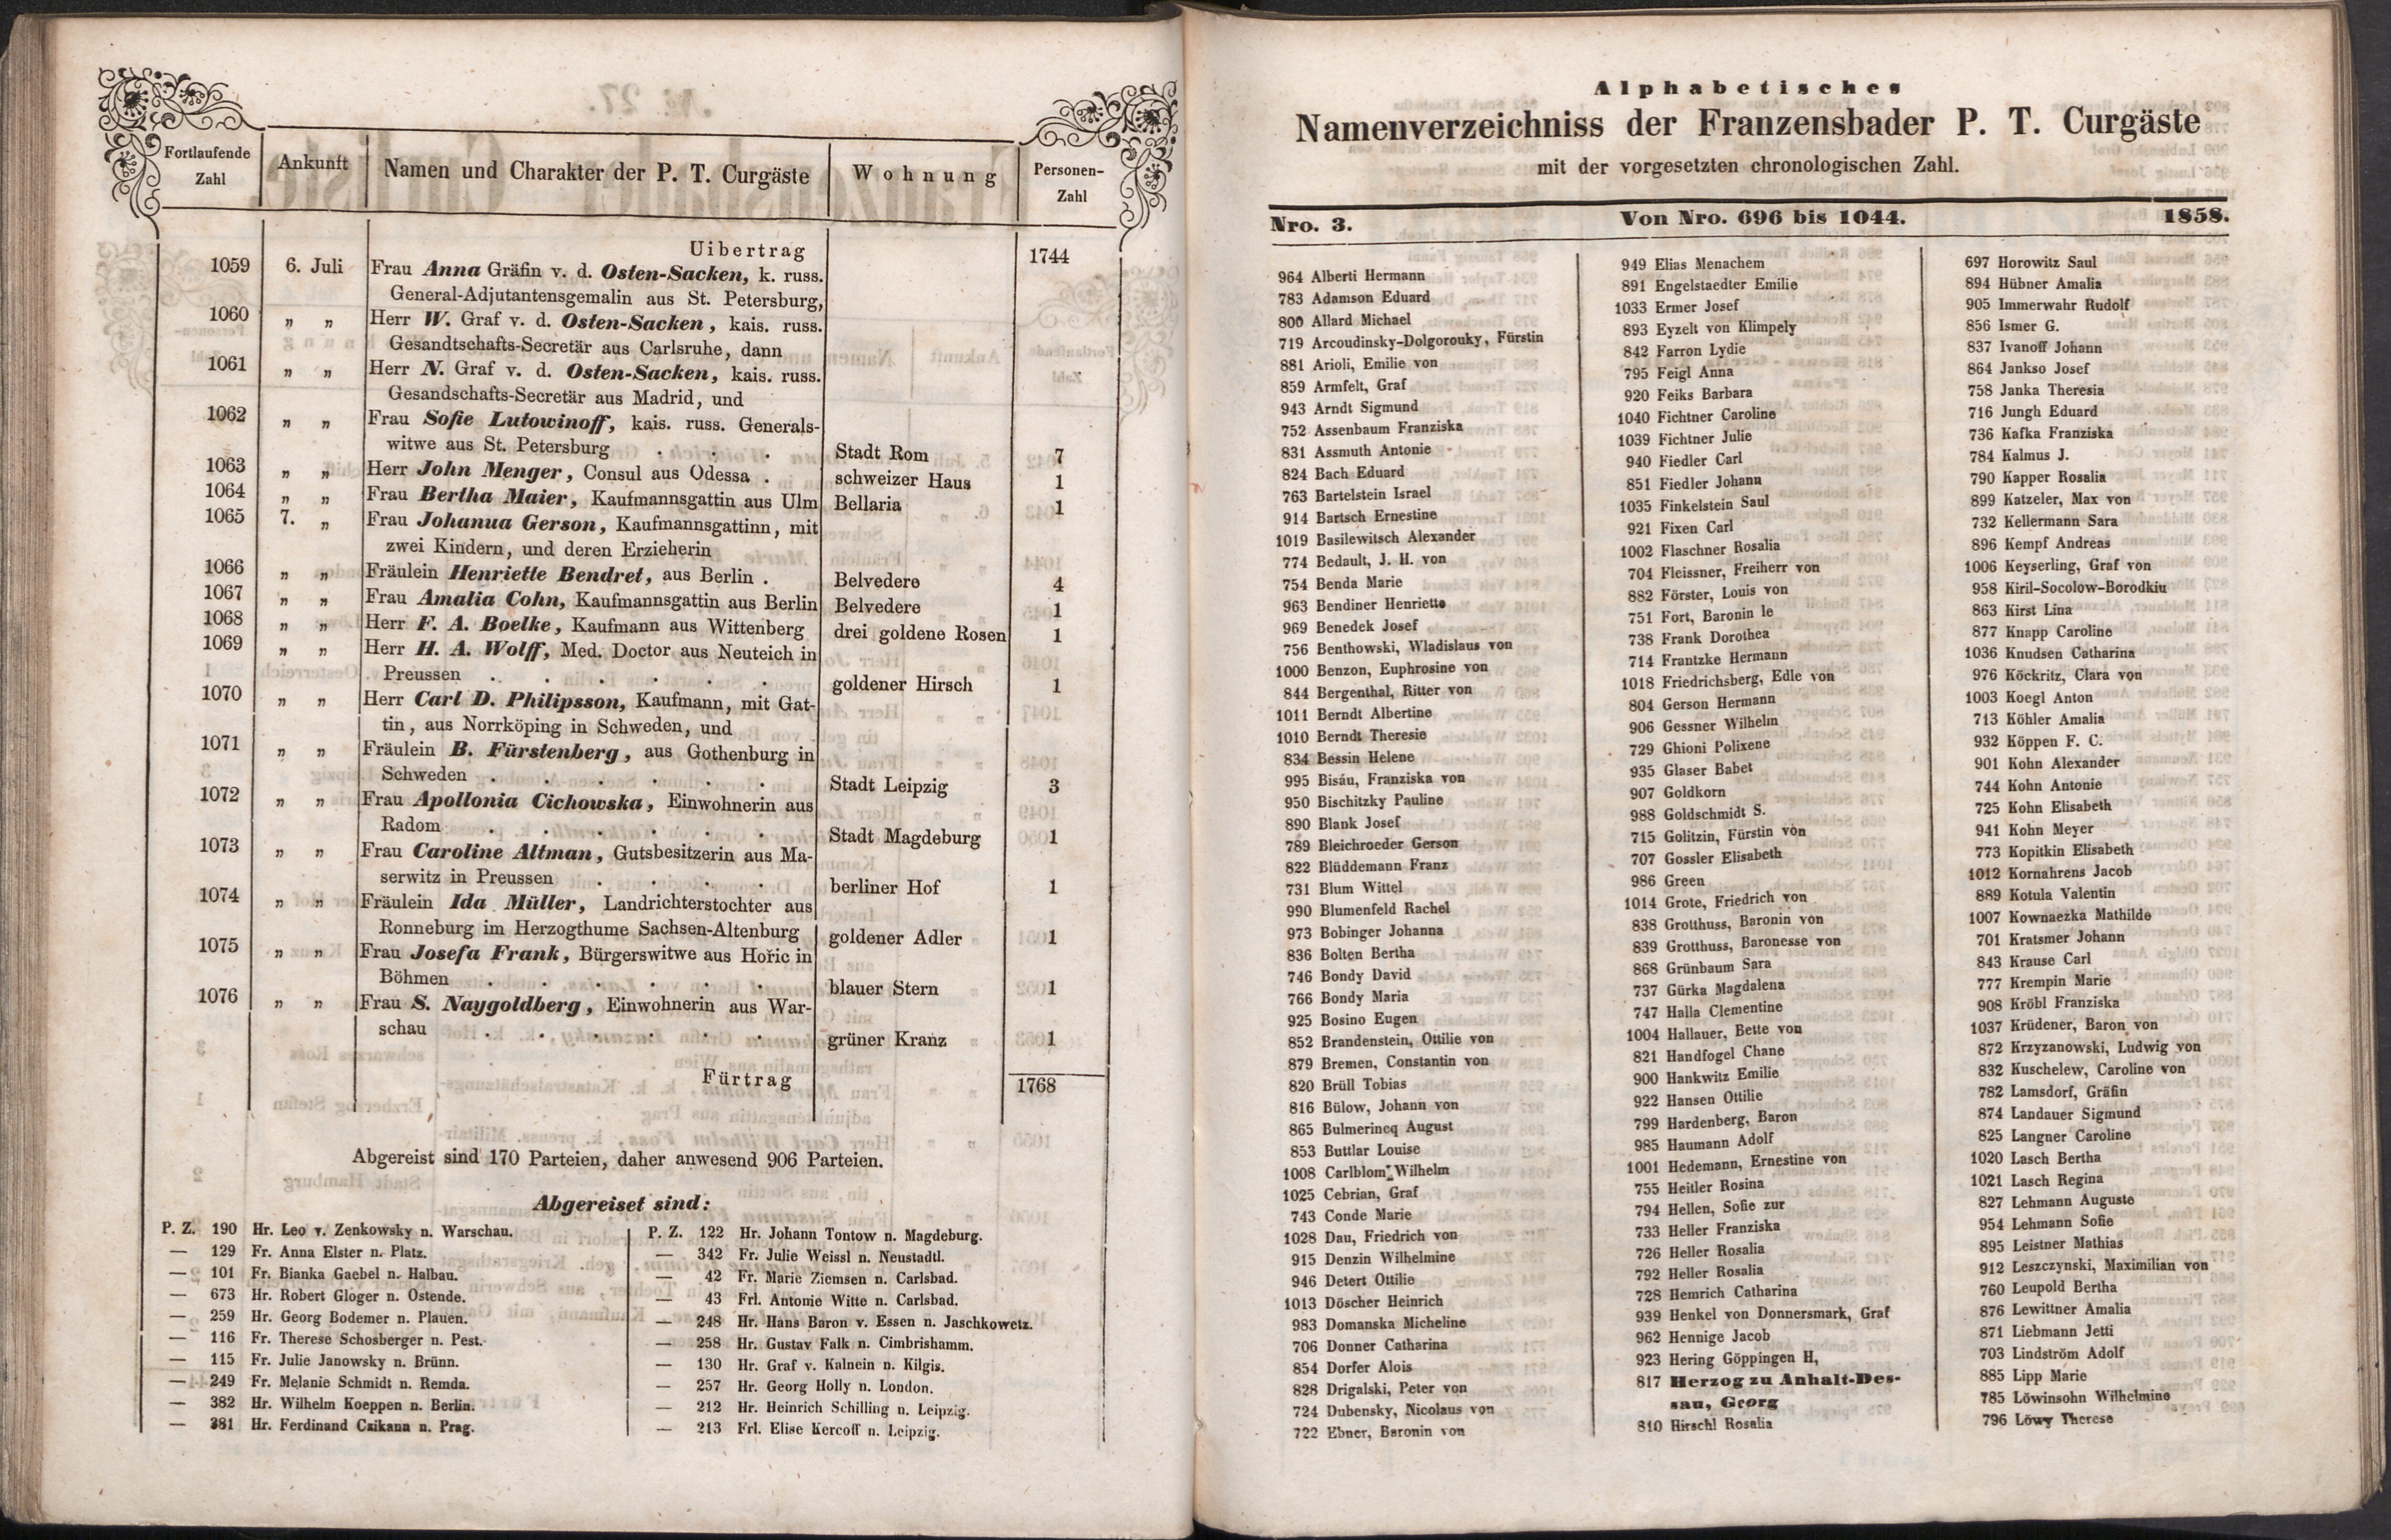 Fortlaufende Zahl
Ankunft
Namen und Charakter der P. T. Curgäste
Wohnung
Personen-Zahl
Uibertrag 1744
1059 6. Juli Frau Anna Gräfin v. d. Osten-Sacken, k. russ.
General-Adjutantensgemalin aus St. Petersburg,
1060 „ „ Herr W. Graf v. d. Osten-Sacken, kais. russ.
Gesandtschafts-Secretär aus Carlsruhe, dann
1061 „ „ Herr N. Graf v. d. Osten-Sacken, kais. russ.
Gesandschafts-Secretär aus Madrid, und
1062 „ „ Frau Sofie Lutowinoff, kais. russ. Generals-
witwe aus St. Petersburg . . . Stadt Rom 7
1063 „ „ Herr John Menger, Consul aus Odessa . schweizer Haus 1
1064 „ „ Frau Bertha Maier, Kaufmannsgattin aus Ulm Bellaria 1
1065 7. „ Frau Johanua Gerson, Kaufmannsgattinn, mit
zwei Kindern, und deren Erzieherin
1066 „ „ Fräulein Henriette Bendret, aus Berlin . Belvedere 4
1067 „ „ Frau Amalia Cohn, Kaufmannsgattin aus Berlin Belvedere 1
1068 „ „ Herr F. A. Boelke, Kaufmann aus Wittenberg drei goldene Rosen 1
1069 „ „ Herr H. A. Wolff, Med. Doctor aus Neuteich in
Preussen . . . . . . goldener Hirsch 1
1070 „ „ Herr Carl D. Philipsson, Kaufmann, mit Gat-
tin, aus Norrköping in Schweden, und
1071 „ „ Fräulein B. Fürstenberg, aus Gothenburg in
Schweden . . . . . . Stadt Leipzig 3
1072 „ „ Frau Apollonia Cichowska, Einwohnerin aus
Radom . . . . . . Stadt Magdeburg 1
1073 „ „ Frau Caroline Altman, Gutsbesitzerin aus Ma-
serwitz in Preussen . . . . berliner Hof 1
1074 „ „ Fräulein Ida Müller, Landrichterstochter aus
Ronneburg im Herzogthume Sachsen-Altenburg goldener Adler 1
1075 „ „ Frau Josefa Frank, Bürgerswitwe aus Hořic in
Böhmen . . . . . . blauer Stern 1
1076 „ „ Frau S. Naygoldberg, Einwohnerin aus War-
schau . . . . . . grüner Kranz 1
Fürtrag 1768
Abgereist sind 170 Parteien, daher anwesend 906 Parteien.
Abgereiset sind:
P. Z. 190 Hr. Leo v. Zenkowsky n. Warschau.
— 129 Fr. Anna Elster n. Platz.
— 101 Fr. Bianka Gaebel n. Halbau.
— 673 Hr. Robert Gloger n. Ostende.
— 259 Hr. Georg Bodemer n. Plauen.
— 116 Fr. Therese Schosberger n. Pest.
— 115 Fr. Julie Janowsky n. Brünn.
— 249 Fr. Melanie Schmidt n. Remda.
— 382 Hr. Wilhelm Koeppen n. Berlin.
— 381 Hr. Ferdinand Czikann n. Prag.
P. Z. 122 Hr. Johann Tontow n. Magdeburg.
— 342 Fr. Julie Weissl n. Neustadtl.
— 42 Fr. Marie Ziemsen n. Carlsbad.
— 43 Frl. Antonie Witte n. Carlsbad.
— 248 Hr. Hans Baron v. Essen n. Jaschkowetz.
— 258 Hr. Gustav Falk n. Cimbrishamm.
— 130 Hr. Graf v. Kalnein n. Kilgis.
— 257 Hr. Georg Holly n. London.
— 212 Hr. Heinrich Schilling n. Leipzig.
— 213 Frl. Elise Kercoff n. Leipzig.
Alphabetisches
Namenverzeichniss der Franzensbader P. T. Curgäste
mit der vorgesetzten chronologischen Zahl.
Nro. 3. Von Nro. 696 bis 1044. 1858.
964 Alberti Hermann
783 Adamson Eduard
800 Allard Michael
719 Arcoudinsky-Dolgorouky, Fürstin
881 Arioli, Emilie von
859 Armfelt, Graf
943 Arndt Sigmund
752 Assenbaum Franziska
831 Assmuth Antonie
824 Bach Eduard
763 Bartelstein Israel
914 Bartsch Ernestine
1019 Basilewitsch Alexander
774 Bedault, J. H. von
754 Benda Marie
963 Bendiner Henriette
969 Benedek Josef
756 Benthowski, Wladislaus von
1000 Benzon, Euphrosine von
844 Bergenthal, Ritter von
1011 Berndt Albertine
1010 Berndt Theresie
834 Bessin Helene
995 Bisáu, Franziska von
950 Bischitzky Pauline
890 Blank Josef
789 Bleichroeder Gerson
822 Blüddemann Franz
731 Blum Wittel
990 Blumenfeld Rachel
973 Bobinger Johanna
836 Bolten Bertha
746 Bondy David
766 Bondy Maria
925 Bosino Eugen
852 Brandenstein, Ottilie von
879 Bremen, Constantin von
820 Brüll Tobias
816 Bülow, Johann von
865 Bulmerincq August
853 Buttlar Louise
1008 Carlblom Wilhelm
1025 Cebrian, Graf
743 Conde Marie
1028 Dau, Friedrich von
915 Denzin Wilhelmine
946 Detert Ottilie
1013 Döscher Heinrich
983 Domanska Micheline
706 Donner Catharina
854 Dorfer Alois
828 Drigalski, Peter von
724 Dubensky, Nicolaus von
722 Ebner, Baronin von
949 Elias Menachem
891 Engelstaedter Emilie
1033 Ermer Josef
893 Eyzelt von Klimpely
842 Farron Lydie
795 Feigl Anna
920 Feiks Barbara
1040 Fichtner Caroline
1039 Fichtner Julie
940 Fiedler Carl
851 Fiedler Johann
1035 Finkelstein Saul
921 Fixen Carl
1002 Flaschner Rosalia
704 Fleissner, Freiherr von
882 Förster, Louis von
751 Fort, Baronin le
738 Frank Dorothea
714 Frantzke Hermann
1018 Friedrichsberg, Edle von
804 Gerson Hermann
906 Gessner Wilhelm
729 Ghioni Polixene
935 Glaser Babet
907 Goldkorn
988 Goldschmidt S.
715 Golitzin, Fürstin von
707 Gossler Elisabeth
986 Green
1014 Grote, Friedrich von
838 Grotthuss, Baronin von
839 Grotthuss, Baronesse von
868 Grünbaum Sara
737 Gürka Magdalena
747 Halla Clementine
1004 Hallauer, Bette von
821 Handfogel Chane
900 Hankwitz Emilie
922 Hansen Ottilie
799 Hardenberg, Baron
985 Haumann Adolf
1001 Hedemann, Ernestine von
755 Heitler Rosina
794 Hellen, Sofie zur
733 Heller Franziska
726 Heller Rosalia
792 Heller Rosalia
728 Hemrich Catharina
939 Henkel von Donnersmark, Graf
962 Hennige Jacob
923 Hering Göppingen H,
817 Herzog zu Anhalt-Des-
sau, Georg
810 Hirschl Rosalia
697 Horowitz Saul
894 Hübner Amalia
905 Immerwahr Rudolf
856 Ismer G.
837 Ivanoff Johann
864 Jankso Josef
758 Janka Theresia
716 Jungh Eduard
736 Kafka Franziska
784 Kalmus J.
790 Kapper Rosalia
899 Katzeler, Max von
732 Kellermann Sara
896 Kempf Andreas
1006 Keyserling, Graf von
958 Kiril-Socolow-Borodkiu
863 Kirst Lina
877 Knapp Caroline
1036 Knudsen Catharina
976 Köckritz, Clara von
1003 Koegl Anton
713 Köhler Amalia
932 Köppen F. C.
901 Kohn Alexander
744 Kohn Antonie
725 Kohn Elisabeth
941 Kohn Meyer
773 Kopitkin Elisabeth
1012 Kornahrens Jacob
889 Kotula Valentin
1007 Kownaezka Mathilde
701 Kratsmer Johann
843 Krause Carl
777 Krempin Marie
908 Kröbl Franziska
1037 Krüdener, Baron von
872 Krzyzanowski, Ludwig von
832 Kuschelew, Caroline von
782 Lamsdorf, Gräfin
874 Landauer Sigmund
825 Langner Caroline
1020 Lasch Bertha
1021 Lasch Regina
827 Lehmann Auguste
954 Lehmann Sofie
895 Leistner Mathias
912 Leszczynski, Maximilian von
760 Leupold Bertha
876 Lewittner Amalia
871 Liebmann Jetti
703 Lindström Adolf
885 Lipp Marie
785 Löwinsohn Wilhelmine
796 Löwy Therese